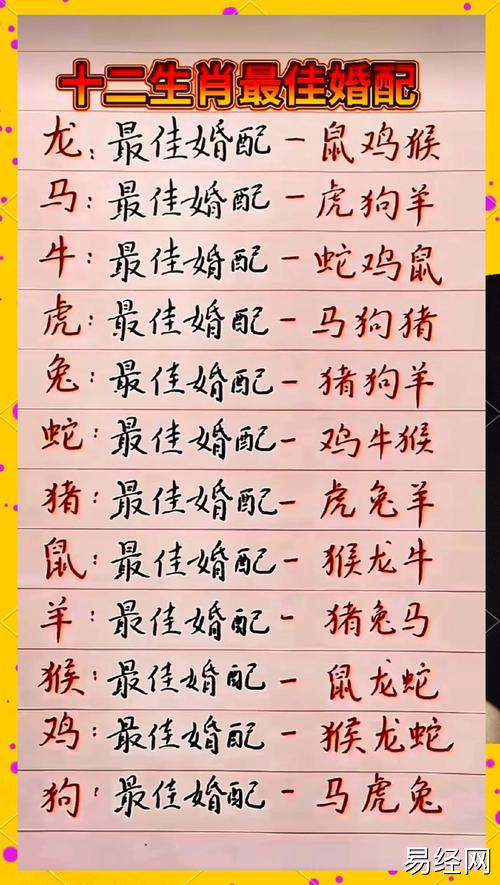 十二生肖最佳婚配
龙：最佳婚配－鼠鸡猴
马：最佳婚配－虎狗羊
牛：最佳婚配－蛇鸡鼠
虎：最佳婚配－马狗猪
兔：最佳婚配－猪狗羊
蛇：最佳婚配－鸡牛猴
猪：最佳婚配－虎兔羊
鼠：最佳婚配－猴龙牛
羊：最佳婚配－猪兔马
猴：最佳婚配－鼠龙蛇
鸡：最佳婚配－猴龙蛇
狗：最佳婚配－马虎兔
易经网